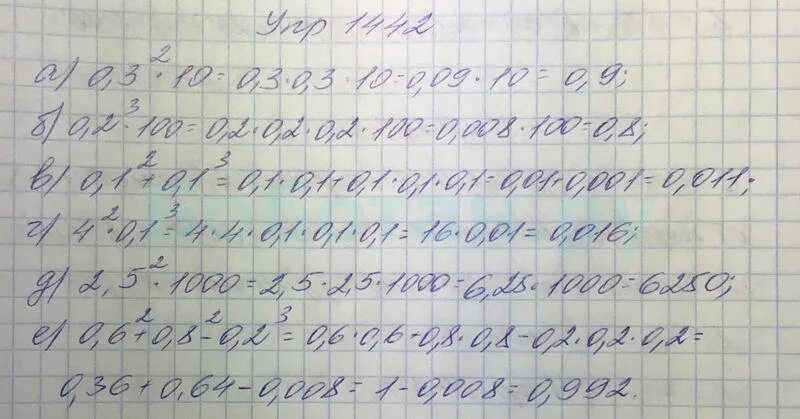 Упр 1442
а) 0,3²·10=0,3·0,3·10=0,09·10=0,9;
б) 0,2³·100=0,2·0,2·0,2·100=0,008·100=0,8;
в) 0,1²+0,1³=0,1·0,1+0,1·0,1·0,1=0,01+0,001=0,011;
г) 4²·0,1³=4·4·0,1·0,1·0,1=16·0,01=0,016;
д) 2,5²·1000=2,5·2,5·1000=6,25·1000=6250;
е) 0,6²+0,8²-0,2³=0,6·0,6+0,8·0,8-0,2·0,2·0,2=
0,36+0,64-0,008=1-0,008=0,992.